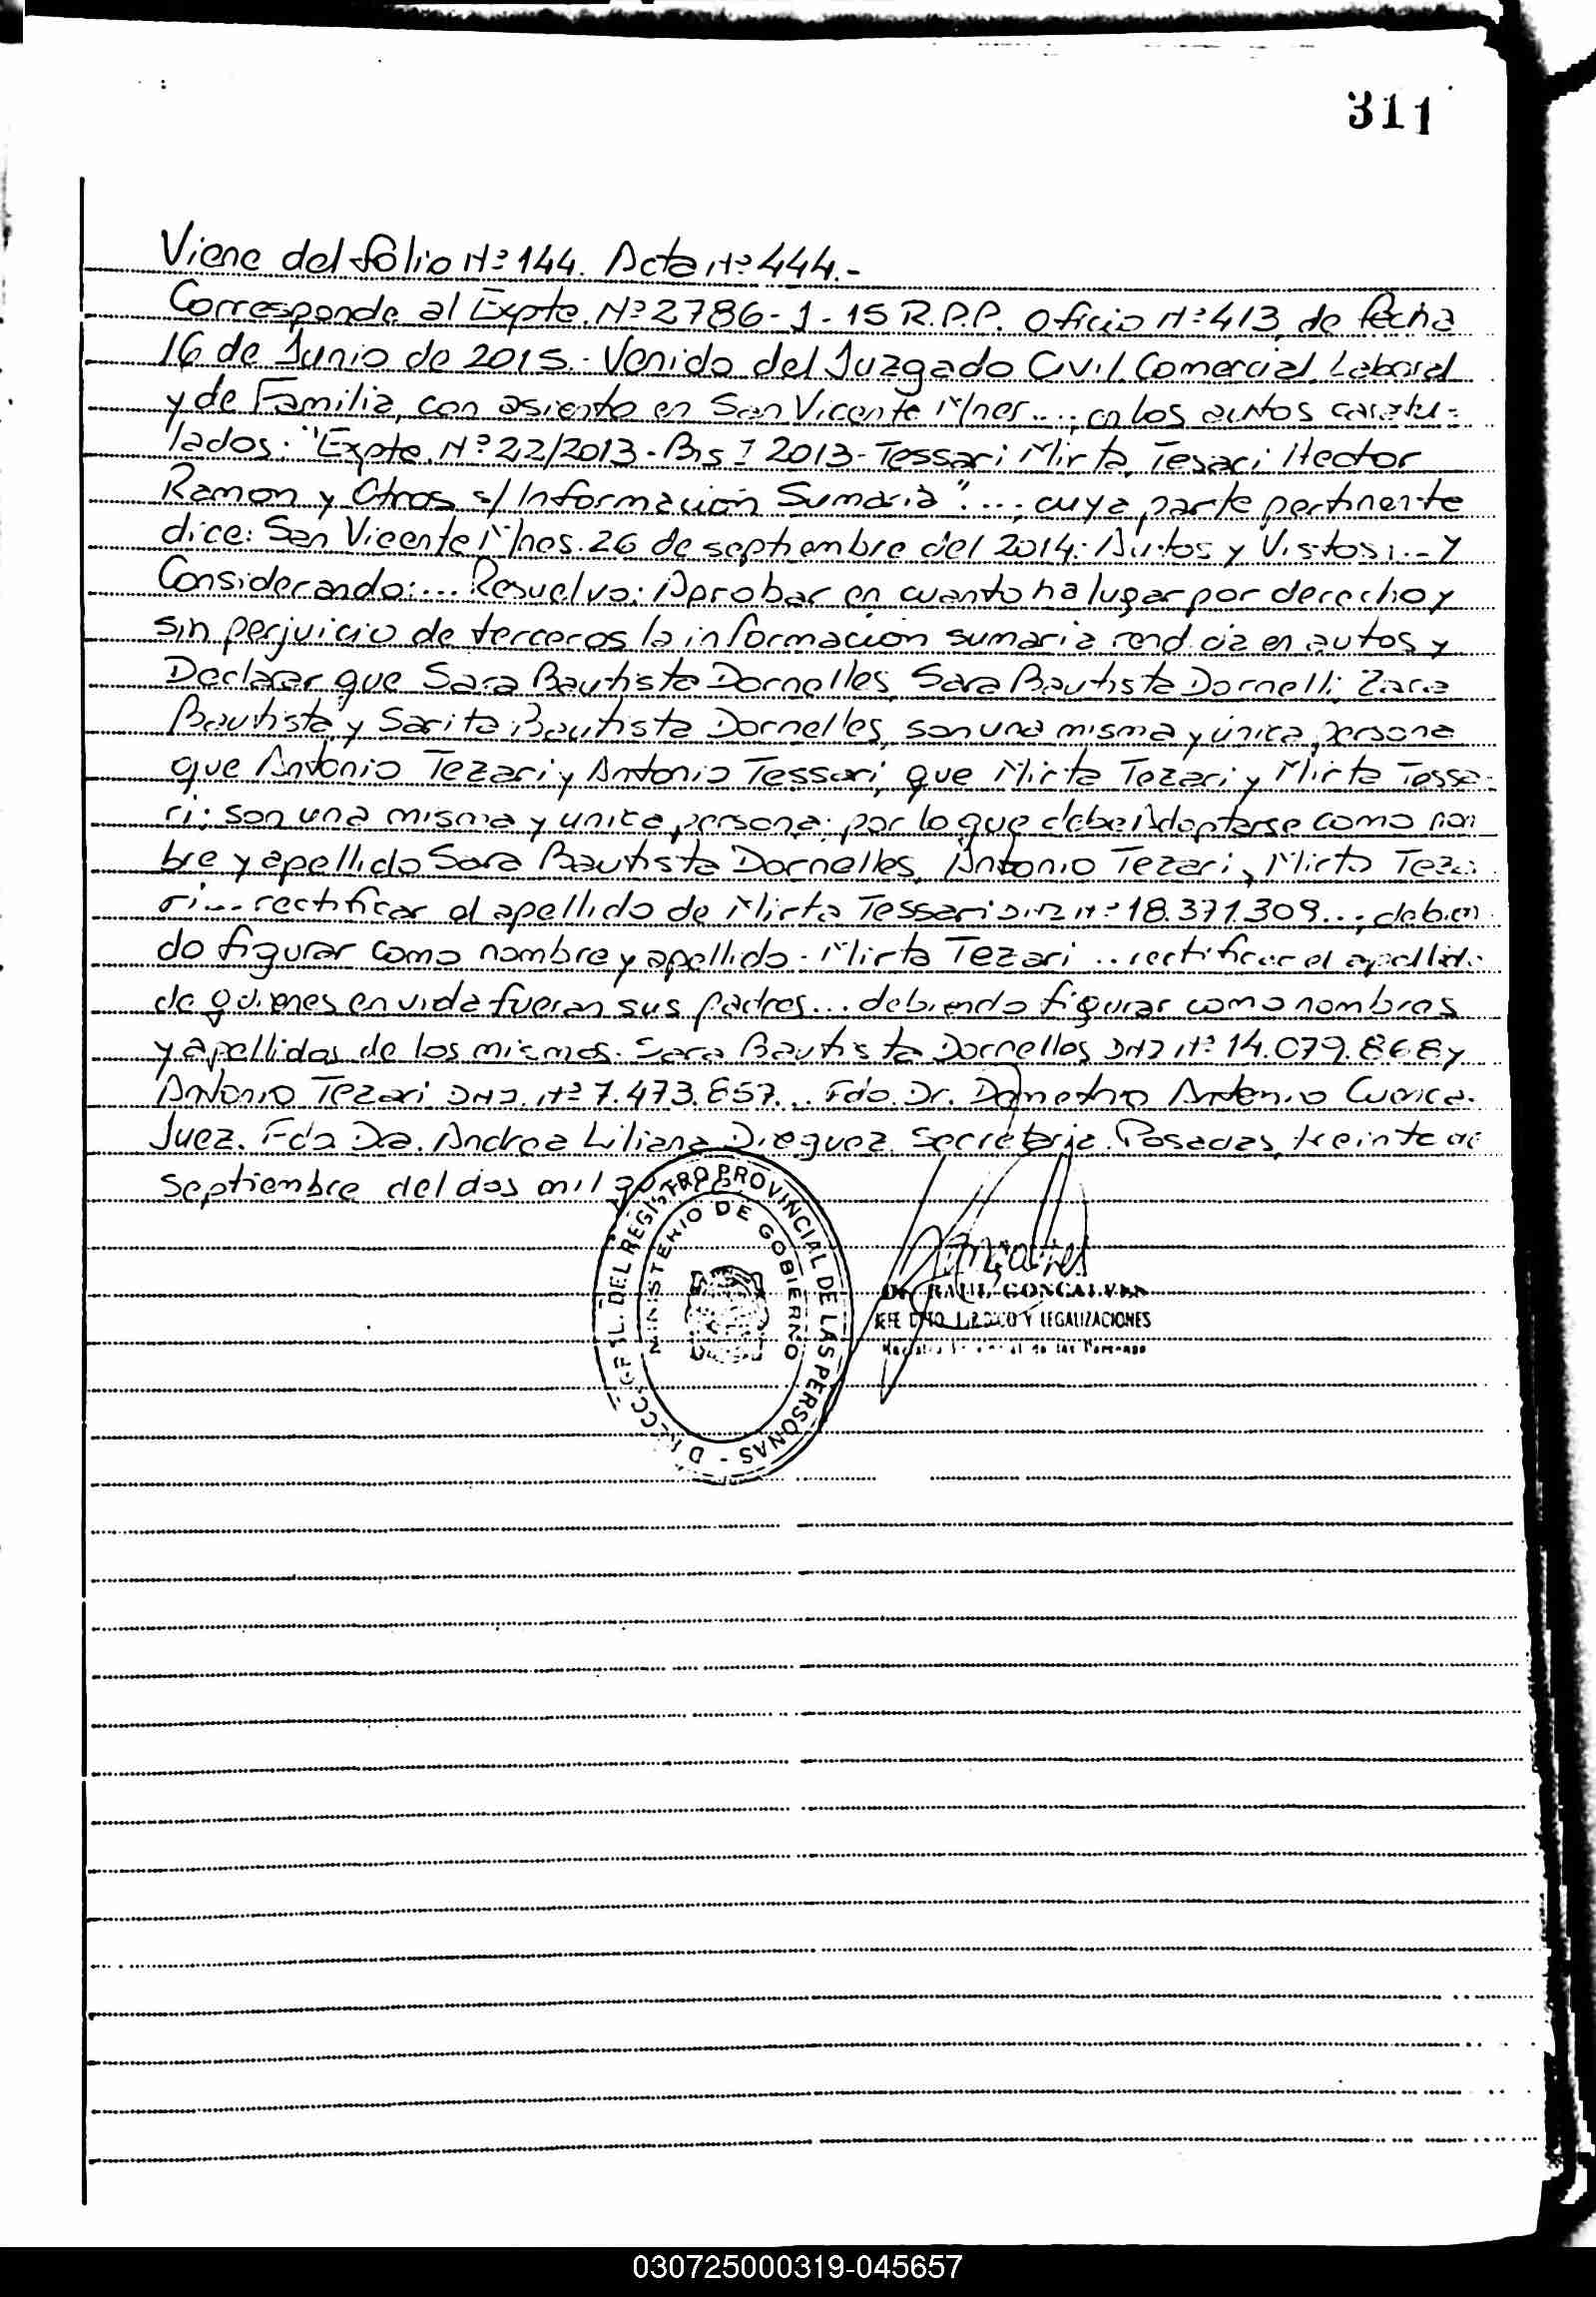 311
Viene del folio Nº 144. Acta Nº 444.-
Corresponde al Expte. Nº 2786-1-15 R.P.P. oficio Nº 413, de fecha
16 de Junio de 2015.- Venido del Juzgado Civil, Comercial, Laboral
y de Familia, con asiento en San Vicente Mnes...; en los autos caratu-
lados: "Expte. Nº 212/2013-Bis 1 2013-Tessari Mirta, Tesari Hector
Ramon y Otros s/ Información Sumaria"...; cuya parte pertinente
dice: San Vicente Mnes. 26 de septiembre del 2014: Autos y Vistos:..- Y
Considerando:... Resuelvo: Aprobar en cuanto ha lugar por derecho y
sin perjuicio de terceros la información sumaria rendida en autos y
Declarar que Sara Bautista Dornelles, Sara Bautista Dornelli, Zara
Bautista y Sarita Bautista Dornelles, son una misma y única persona
que Antonio Tezari y Antonio Tessari, que Mirta Tezari y Mirta Tessa-
ri; son una misma y unica persona; por lo que debe Adoptarse como nom
bre y apellido Sara Bautista Dornelles, Antonio Tezari, Mirta Teza
ri... rectificar el apellido de Mirta Tessari DNI Nº 18.371.309...; debien
do figurar como nombre y apellido - Mirta Tezari .. rectificar el apellido
de quienes en vida fueran sus padres... debiendo figurar como nombres
y apellidos de los mismos. Sara Bautista Dornelles DNI Nº 14.079.868 y
Antonio Tezari DNI. Nº 7.473.657... Fdo. Dr. Demetrio Antonio Cuenca.
Juez. Fdo Dra. Andrea Liliana Dieguez. Secretaria. Posadas, treinta de
Septiembre del dos mil
DEL REGISTRO PROVINCIAL DE LAS PERSONAS -
MINISTERIO DE GOBIERNO
Dr. RAUL GONCALVES
JEFE DPTO. JURIDICO Y LEGALIZACIONES
Registro Provincial de las Personas
030725000319-045657